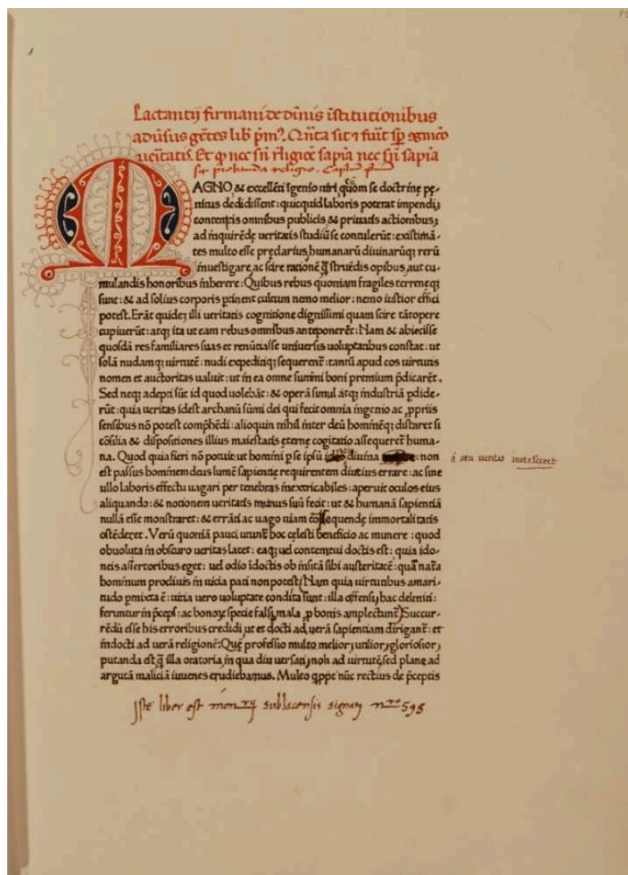 Lactantij firmani de diuinis īstitutionibus
aduersus gētes lib prim⁹
ueritatis. Et q nec sn religiōe sapīa nec sn sapīa
sit probanda religio. Caplm pm
MAGNO & excellēti īgenio uiri, quom se doctrinę pę
nitus dedidissent: quicquid laboris poterat impendi,
contemptis omnibus publicis & priuatis actionibus,
ad inquirēdę ueritatis studiū se contulerūt: existimā
tes multo esse pręclarius, humanarū diuinarūq; rerū
inuestigare ac scire rationē q̄ struēdis opibus, aut cu
mulandis honoribus inherere: Quibus rebus quoniam fragiles terreneq;
sunt: & ad solius corporis ptinent cultum nemo melior: nemo iustior effici
potest. Erāt quidē illi ueritatis cognitione dignissimi quam scire tātopere
cupiuerūt: atq; ita ut eam rebus omnibus anteponerēt: Nam & abiecisse
quosdā res familiares suas et renūtiasse uniuersis uoluptatibus constat: ut
solā nudamq; uirtutē: nudi expeditiq; sequerent̄: tantū apud eos uirtutis
nomen et auctoritas ualuit: ut in ea omne summi boni premium p̄dicarēt.
Sed neq; adepti sūt id quod uolebāt: & operā simul atq; industriā pdide
rūt: quia ueritas idest archanū sūmi dei qui fecit omnia ingenio ac ,ppriis
sensibus nō potest comp̄hēdi: alioquin nihil inter deū hominēq; distaret si
cōsilia & dispositiones illius maiestatis eterne cogitatio assequeret̄ huma
na. Quod quia fieri nō potuit ut homini p se ipsū diuina non
est passus hominem deus lumē sapientie requirentem diutius errare: ac sine
ullo laboris effectu uagari per tenebras inextricabiles: aperuit oculos eius
aliquando: & notionem ueritatis munus suū fecit: ut & humanā sapientiā
nullā esse monstraret: & errāti ac uago uiam cōsequende immortalitatis
ostēderet. Verū quoniā pauci utunt̄ hoc celesti beneficio ac munere: quod
obuoluta in obscuro ueritas latet: eaq; uel contemptui doctis est: quia ido
neis assertoribus eget: uel odio īdoctis ob insitā sibi austeritatē: quā natā
hominum procliuis in uicia pati non potest: Nam quia uirtutibus amari
tudo pmixta ē: uicia uero uoluptate condita sunt: illa offensi, hac deliniti:
feruntur in p̄ceps: ac bonoꝝ specie falsi, mala ,p bonis amplectunt̄. Succur
rēdū esse his erroribus credidi ut et docti ad uerā sapientiam dirigant̄: et
indocti ad uerā religionē: Quę professio multo melior, utilior, gloriosior,
putanda est q̄ illa oratoria, in qua diu uersati, nō ad uirtutē, sed plane ad
argutā maliciā iuuenes erudiebamus. Multo q̄ppe nūc rectius de p̄ceptis
seu ueritas notesceret
Iste liber est mon̄rij sublacensis signat⁹ n̄ro 595